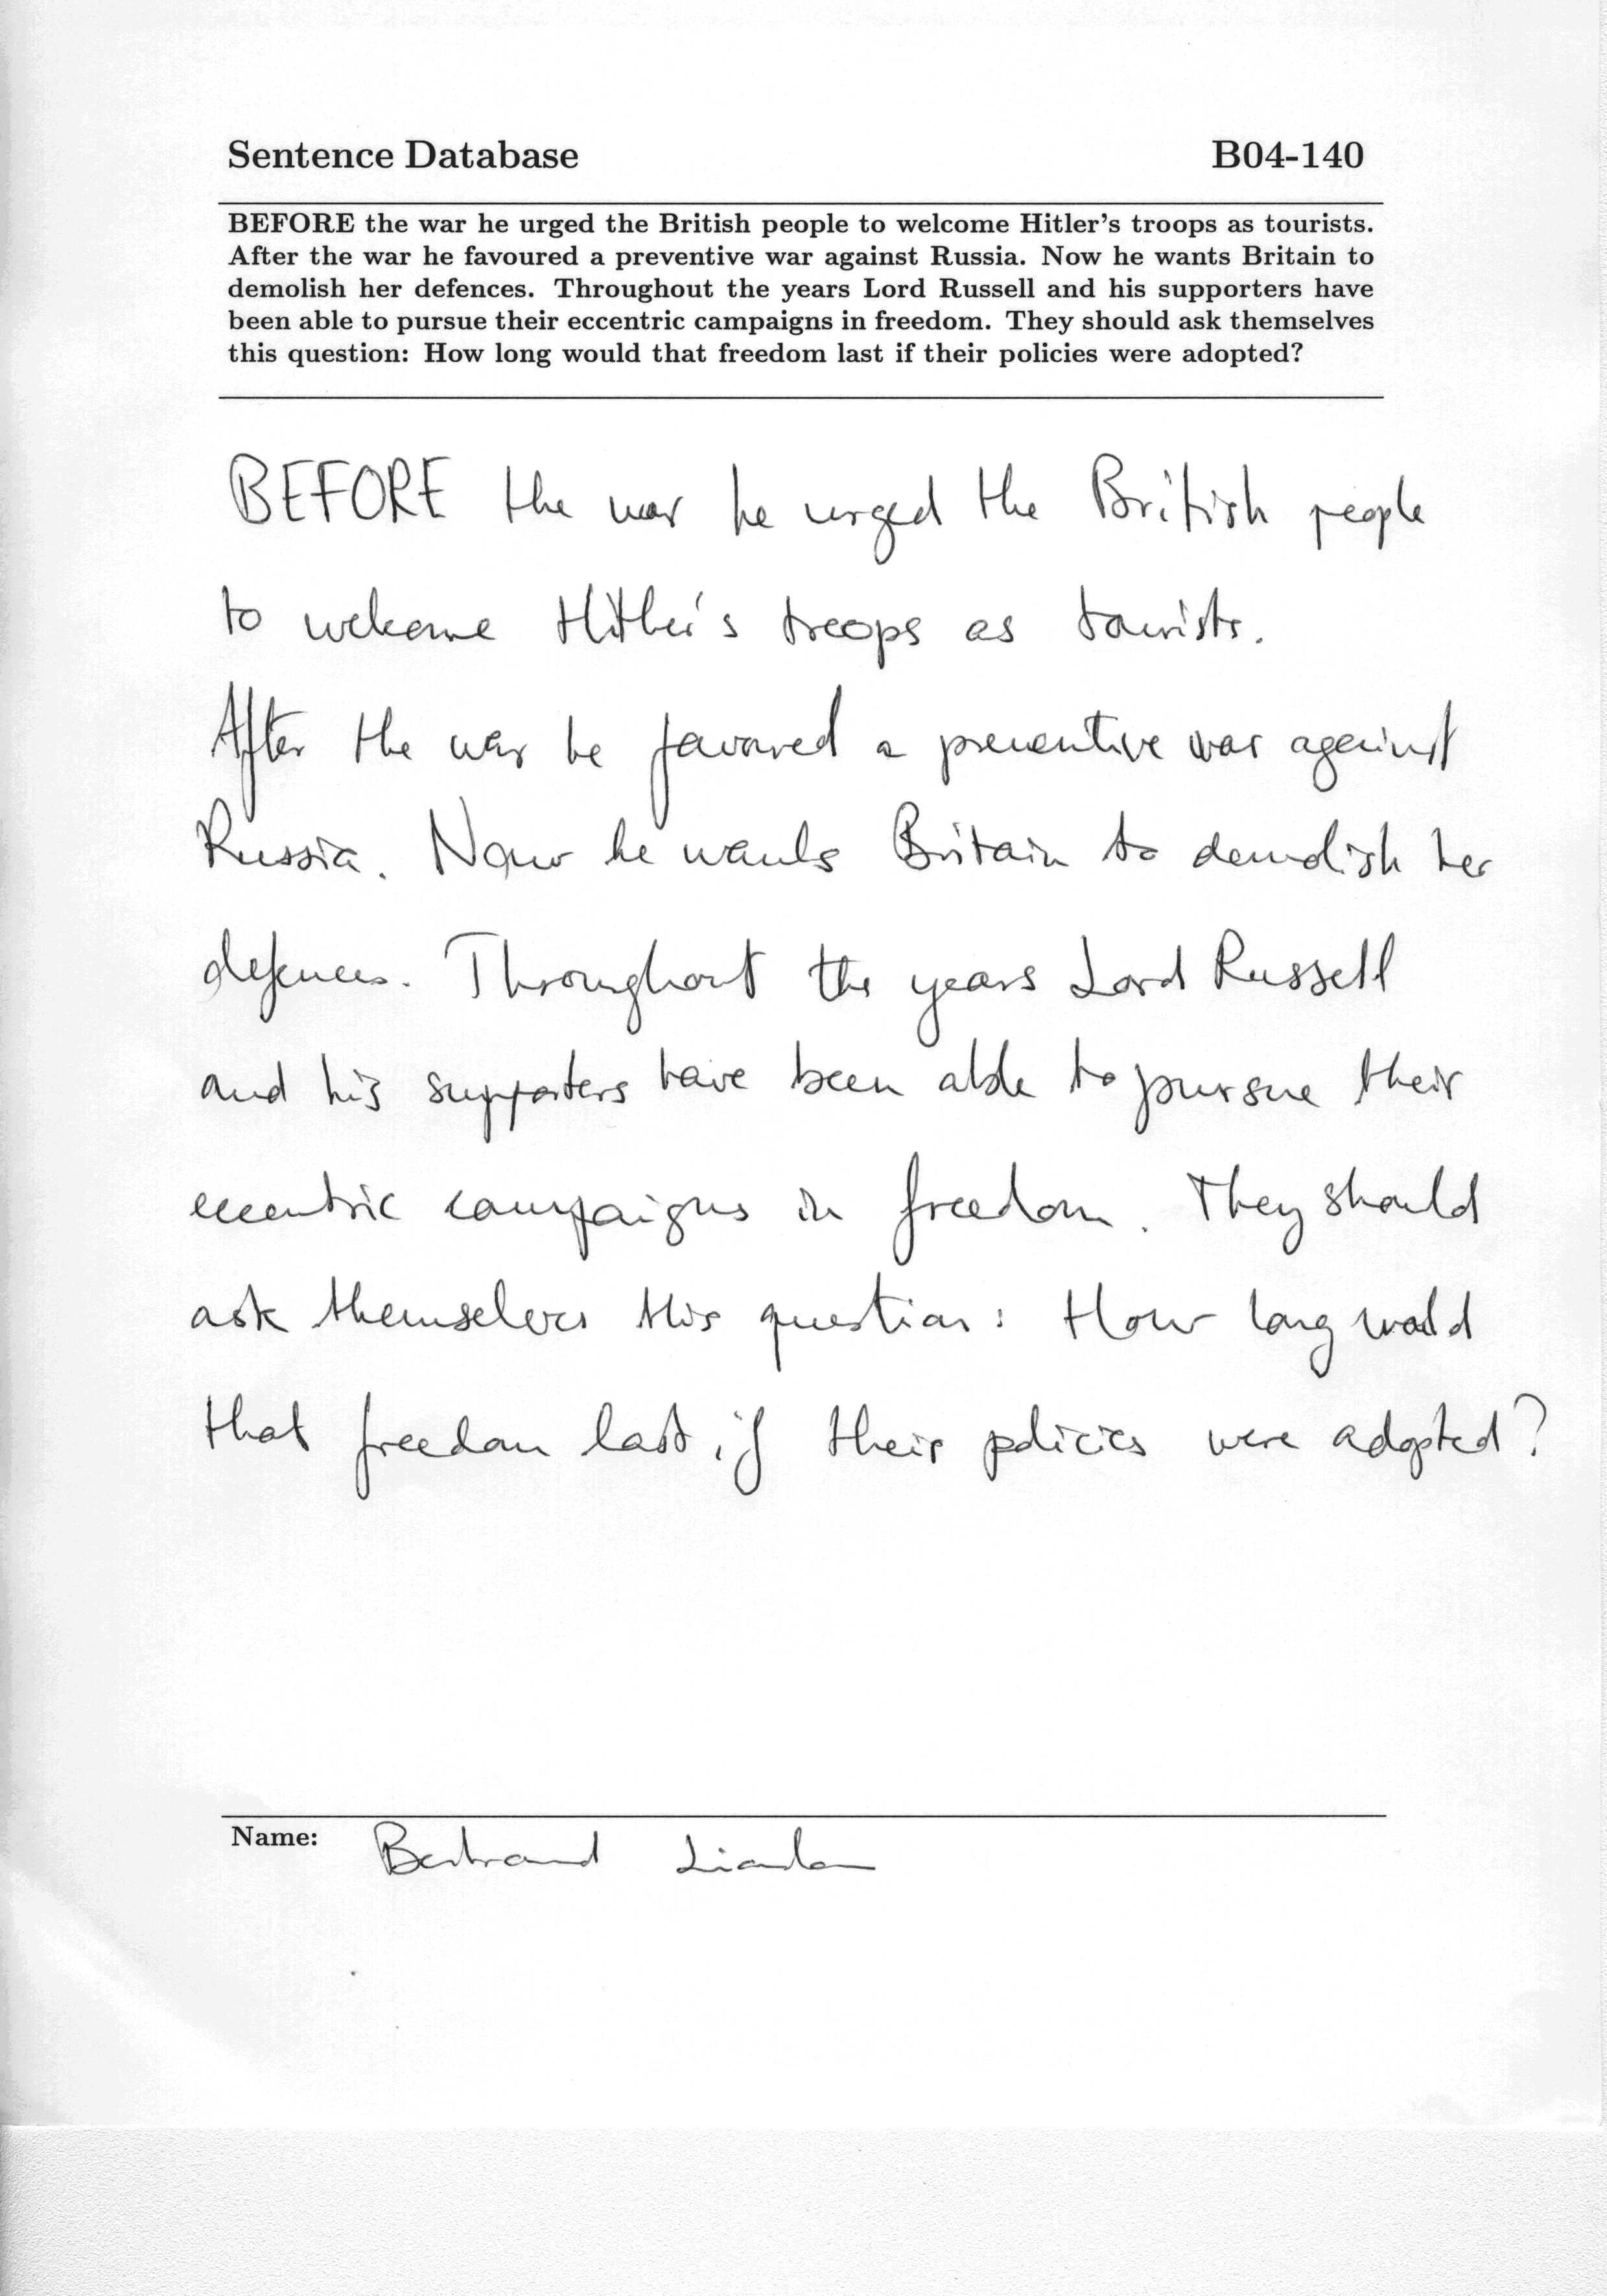 Sentence Database B04-140
BEFORE the war he urged the British people to welcome Hitler's troops as tourists.
After the war he favoured a preventive war against Russia. Now he wants Britain to
demolish her defences. Throughout the years Lord Russell and his supporters have
been able to pursue their eccentric campaigns in freedom. They should ask themselves
this question: How long would that freedom last if their policies were adopted?
BEFORE the war he urged the British people
to welcome Hitler's troops as tourists.
After the war he favoured a preventive war against
Russia. Now he wants Britain to demolish her
defences. Throughout the years Lord Russell
and his supporters have been able to pursue their
eccentric campaigns in freedom. They should
ask themselves this question: How long would
that freedom last if their policies were adopted?
Name: Bertrand